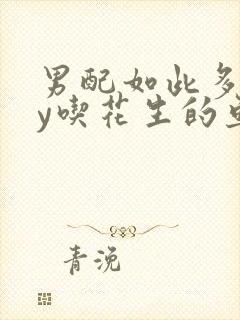 男配如此多
y喫花生的
青浼